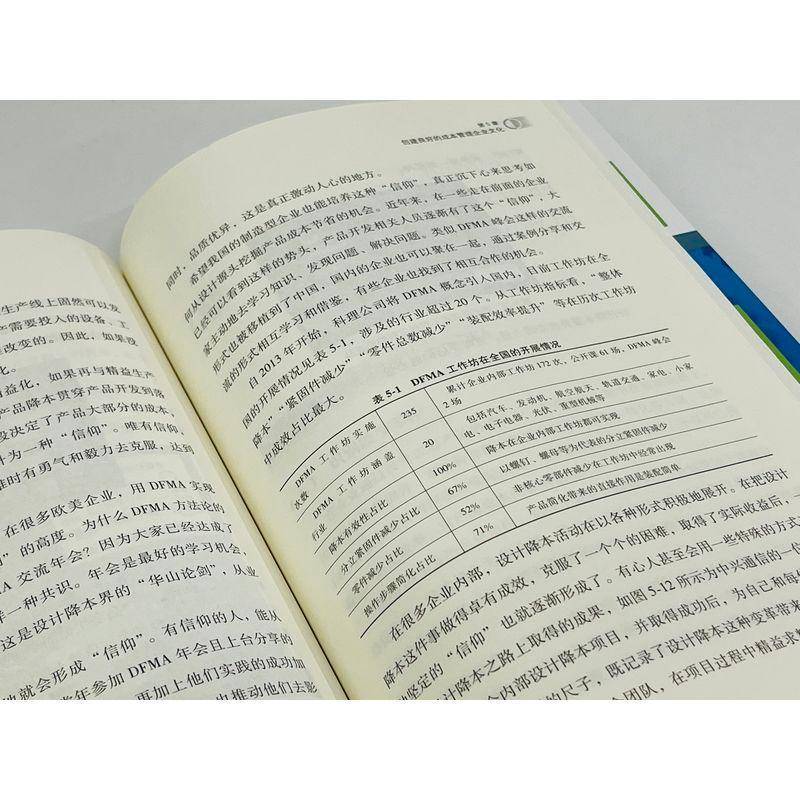 生产线上固然可以发
产需要投入的设备、工
改变的。因此，如果没
化。
益化，如果再与精益生产
产品降本贯穿产品开发到落
段决定了产品大部分的成本，
计为一种“信仰”。唯有信仰，
时有勇气和毅力去克服，达到
在很多欧美企业，用 DFMA 实现
的高度。为什么 DFMA 方法论的
交流年会？因为大家已经达成了
一种共识。年会是最好的学习机会，
这是设计降本界的“华山论剑”，从业
就会形成“信仰”。有信仰的人，能从
年参加 DFMA 年会且上台分享的
再加上他们实践的成功加
推动他们去影
第 5 章
创建良好的成本管理企业文化
同时，品质优异，这是真正激动人心的地方。
希望我国的制造型企业也能培养这种“信仰”，真正沉下心来思考如
何从设计源头挖掘产品成本节省的机会。近年来，在一些走在前面的企业
已经可以看到这样的势头，产品开发相关人员逐渐有了这个“信仰”，大
家主动地去学习知识、发现问题、解决问题。类似 DFMA 峰会这样的交流
形式也被移植到了中国，国内的企业也可以聚在一起，通过案例分享和交
流的形式相互学习和借鉴，有些企业也找到了相互合作的机会。
自 2013 年开始，科理公司将 DFMA 概念引入国内，目前工作坊在全
国的开展情况见表 5-1，涉及的行业超过 20 个。从工作坊将标看，“整体
降本”“紧固件减少”“零件总数减少”“装配效率提升”等在历次工作坊
中成效占比最大。
表 5-1 DFMA 工作坊在全国的开展情况
DFMA 工作坊实施次数 235 累计企业内部工作坊 172 次，公开课 61 场，DFMA 峰会 2 场
DFMA 工作坊涵盖行业 20 包括汽车、发动机、航空航天、轨道交通、家电、小家电、电子电器、光伏、重型机械等
降本有效性占比 100% 降本在企业内部工作坊都可实现
分立紧固件减少占比 67% 以螺钉、螺母等为代表的分立紧固件减少
零件减少占比 52% 非核心零部件减少在工作坊中经常出现
操作步骤简化占比 71% 产品简化带来的直接作用是装配简单
在很多企业内部，设计降本活动在以各种形式积极地展开。在把设计
降本这件事做得卓有成效，克服了一个个的困难，取得了实际收益后，
坚定的“信仰”也就逐渐形成了。有心人甚至会用一些特殊的方式
设计降本之路上取得的成果，如图 5-12 所示为中兴通信的一位
个内部设计降本项目，并取得成功后，为自己和每
的尺子，既记录了设计降本这种变革带来
团队，在项目过程中精益求